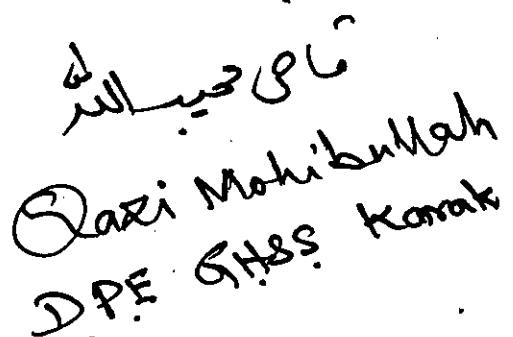 قاضی محیب اللہ
Qazi Mohibullah
DPE GHSS Karak